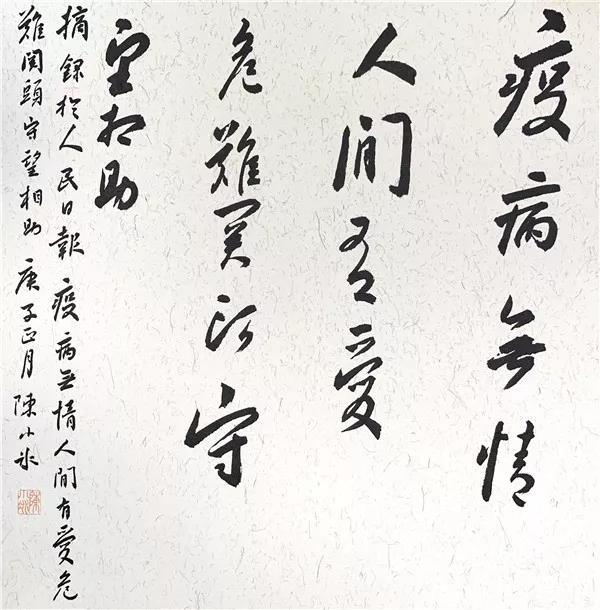 疫病無情
人間有愛
危難関頭守
望相助
摘録於人民日報 疫病無情人間有愛危
難関頭守望相助 庚子正月 陳小冰